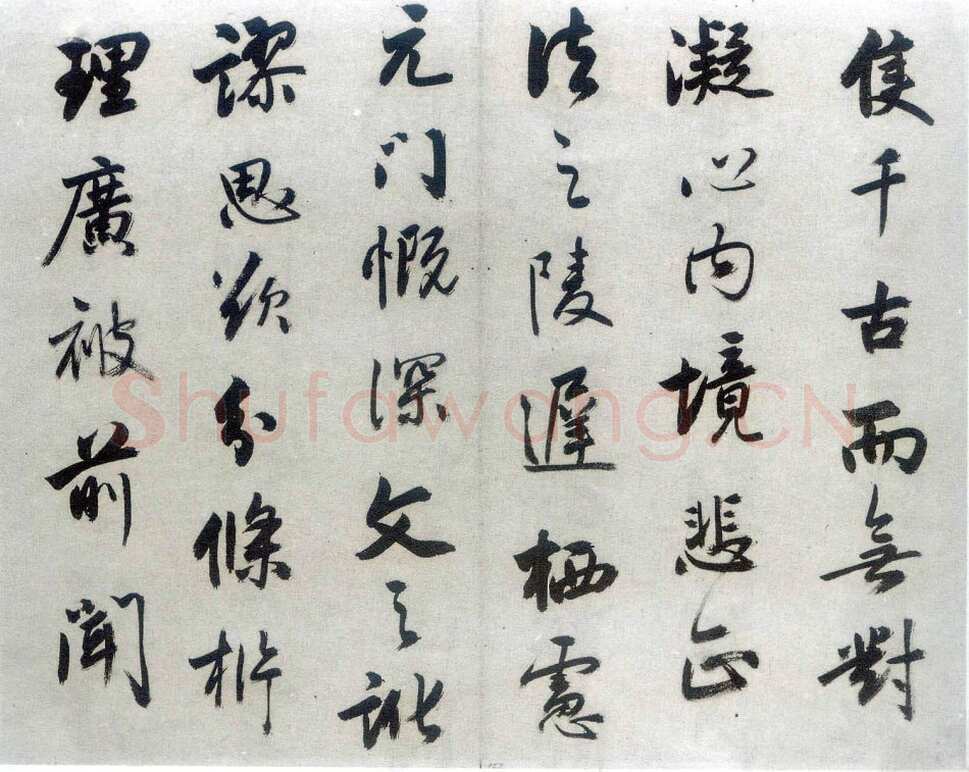 隻千古而無對
凝心内境悲正
法之陵遲栖慮
元门慨深文之訛
謬思欲分條析
理廣被前聞
Shufawang.CN